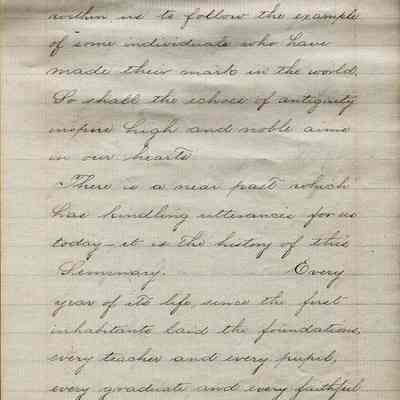 within us to follow the example
of some individuals who have
made their mark in the world.
So shall the echoes of antiquity
inspire high and noble aims
in our hearts
There is a near past which
has kindling utterances for us
today - it is the history of this
Seminary. Every
year of its life, since the first
inhabitants laid the foundations,
every teacher and every pupil,
every graduate and every faithful